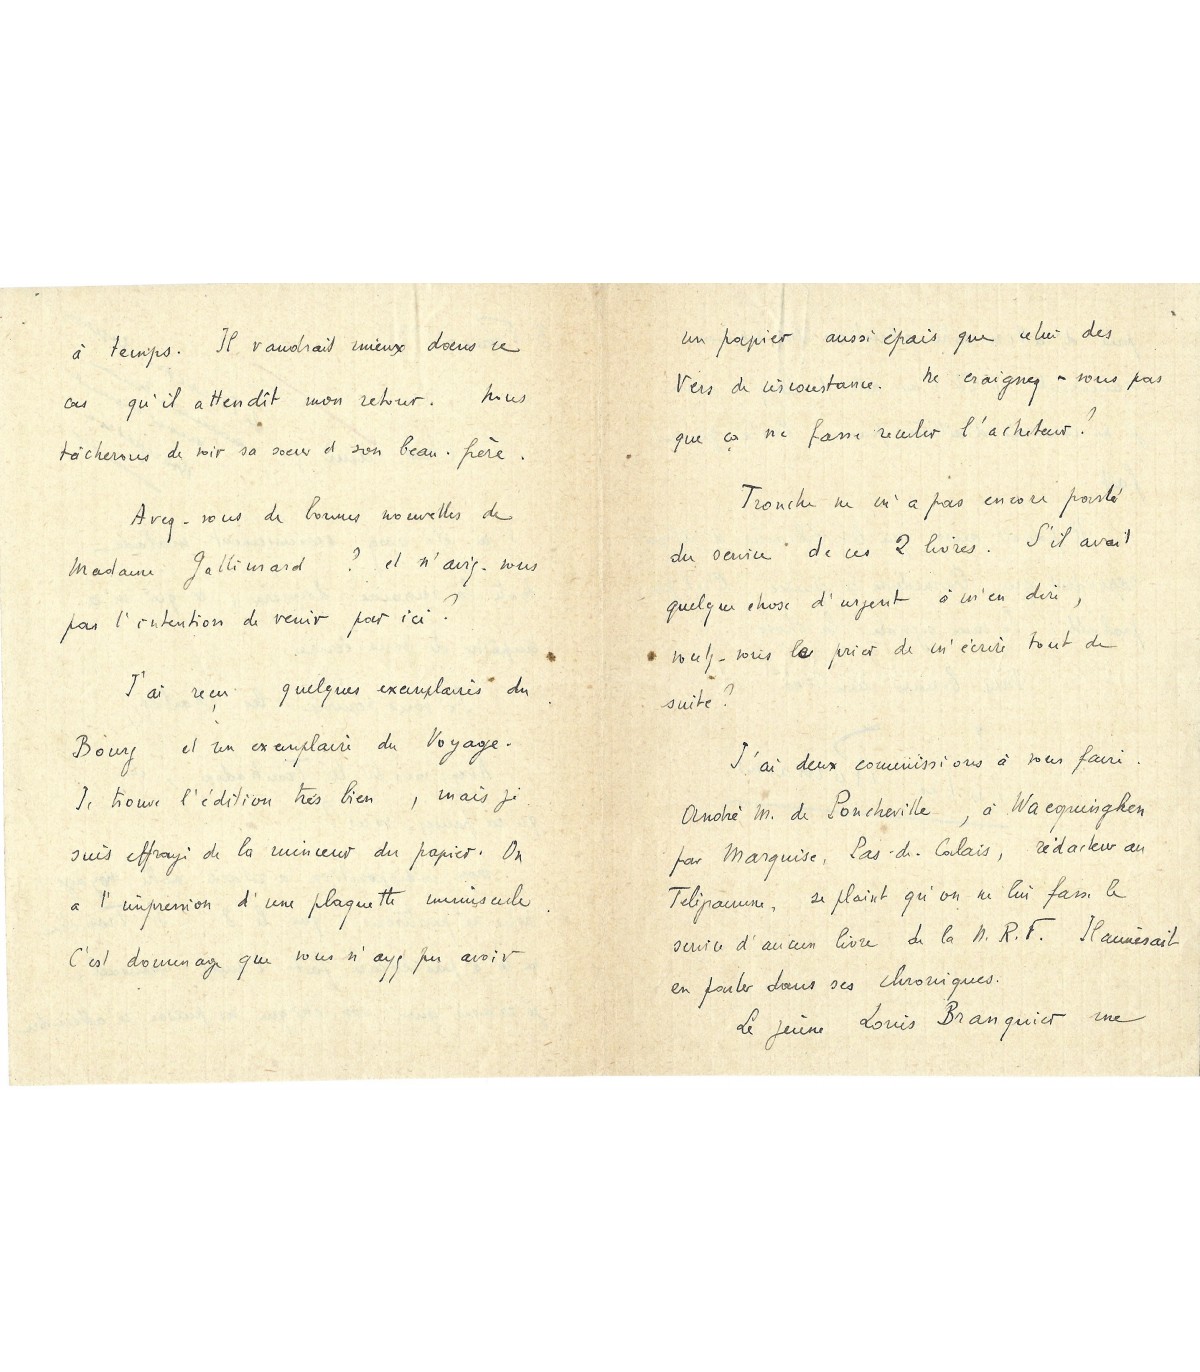 à temps. Il vaudrait mieux dans ce
cas qu'il attendît mon retour. Nous
tâcherons de voir sa soeur et son beau-frère.
Avez-vous de bonnes nouvelles de
Madame Gallimard ? et n'avez-vous
pas l'intention de venir par ici ?
J'ai reçu quelques exemplaires du
Bourg et un exemplaire du Voyage.
Je trouve l'édition très bien, mais je
suis effrayé de la minceur du papier. On
a l'impression d'une plaquette minuscule.
C'est dommage que vous n'ayez pu avoir
un papier aussi épais que celui des
Vers de circonstance. Ne craignez-vous pas
que ça ne fasse reculer l'acheteur ?
Tronche ne m'a pas encore parlé
du service de ces 2 livres. S'il avait
quelque chose d'urgent à m'en dire,
voulez-vous le prier de m'écrire tout de
suite ?
J'ai deux commissions à vous faire.
André M. de Poncheville, à Wacquinghen
par Marquise, Pas-de-Calais, rédacteur au
Télégramme, se plaint qu'on ne lui fasse le
service d'aucun livre de la N.R.F. Il aimerait
en parler dans ses chroniques.
Le jeune Louis Branquier me